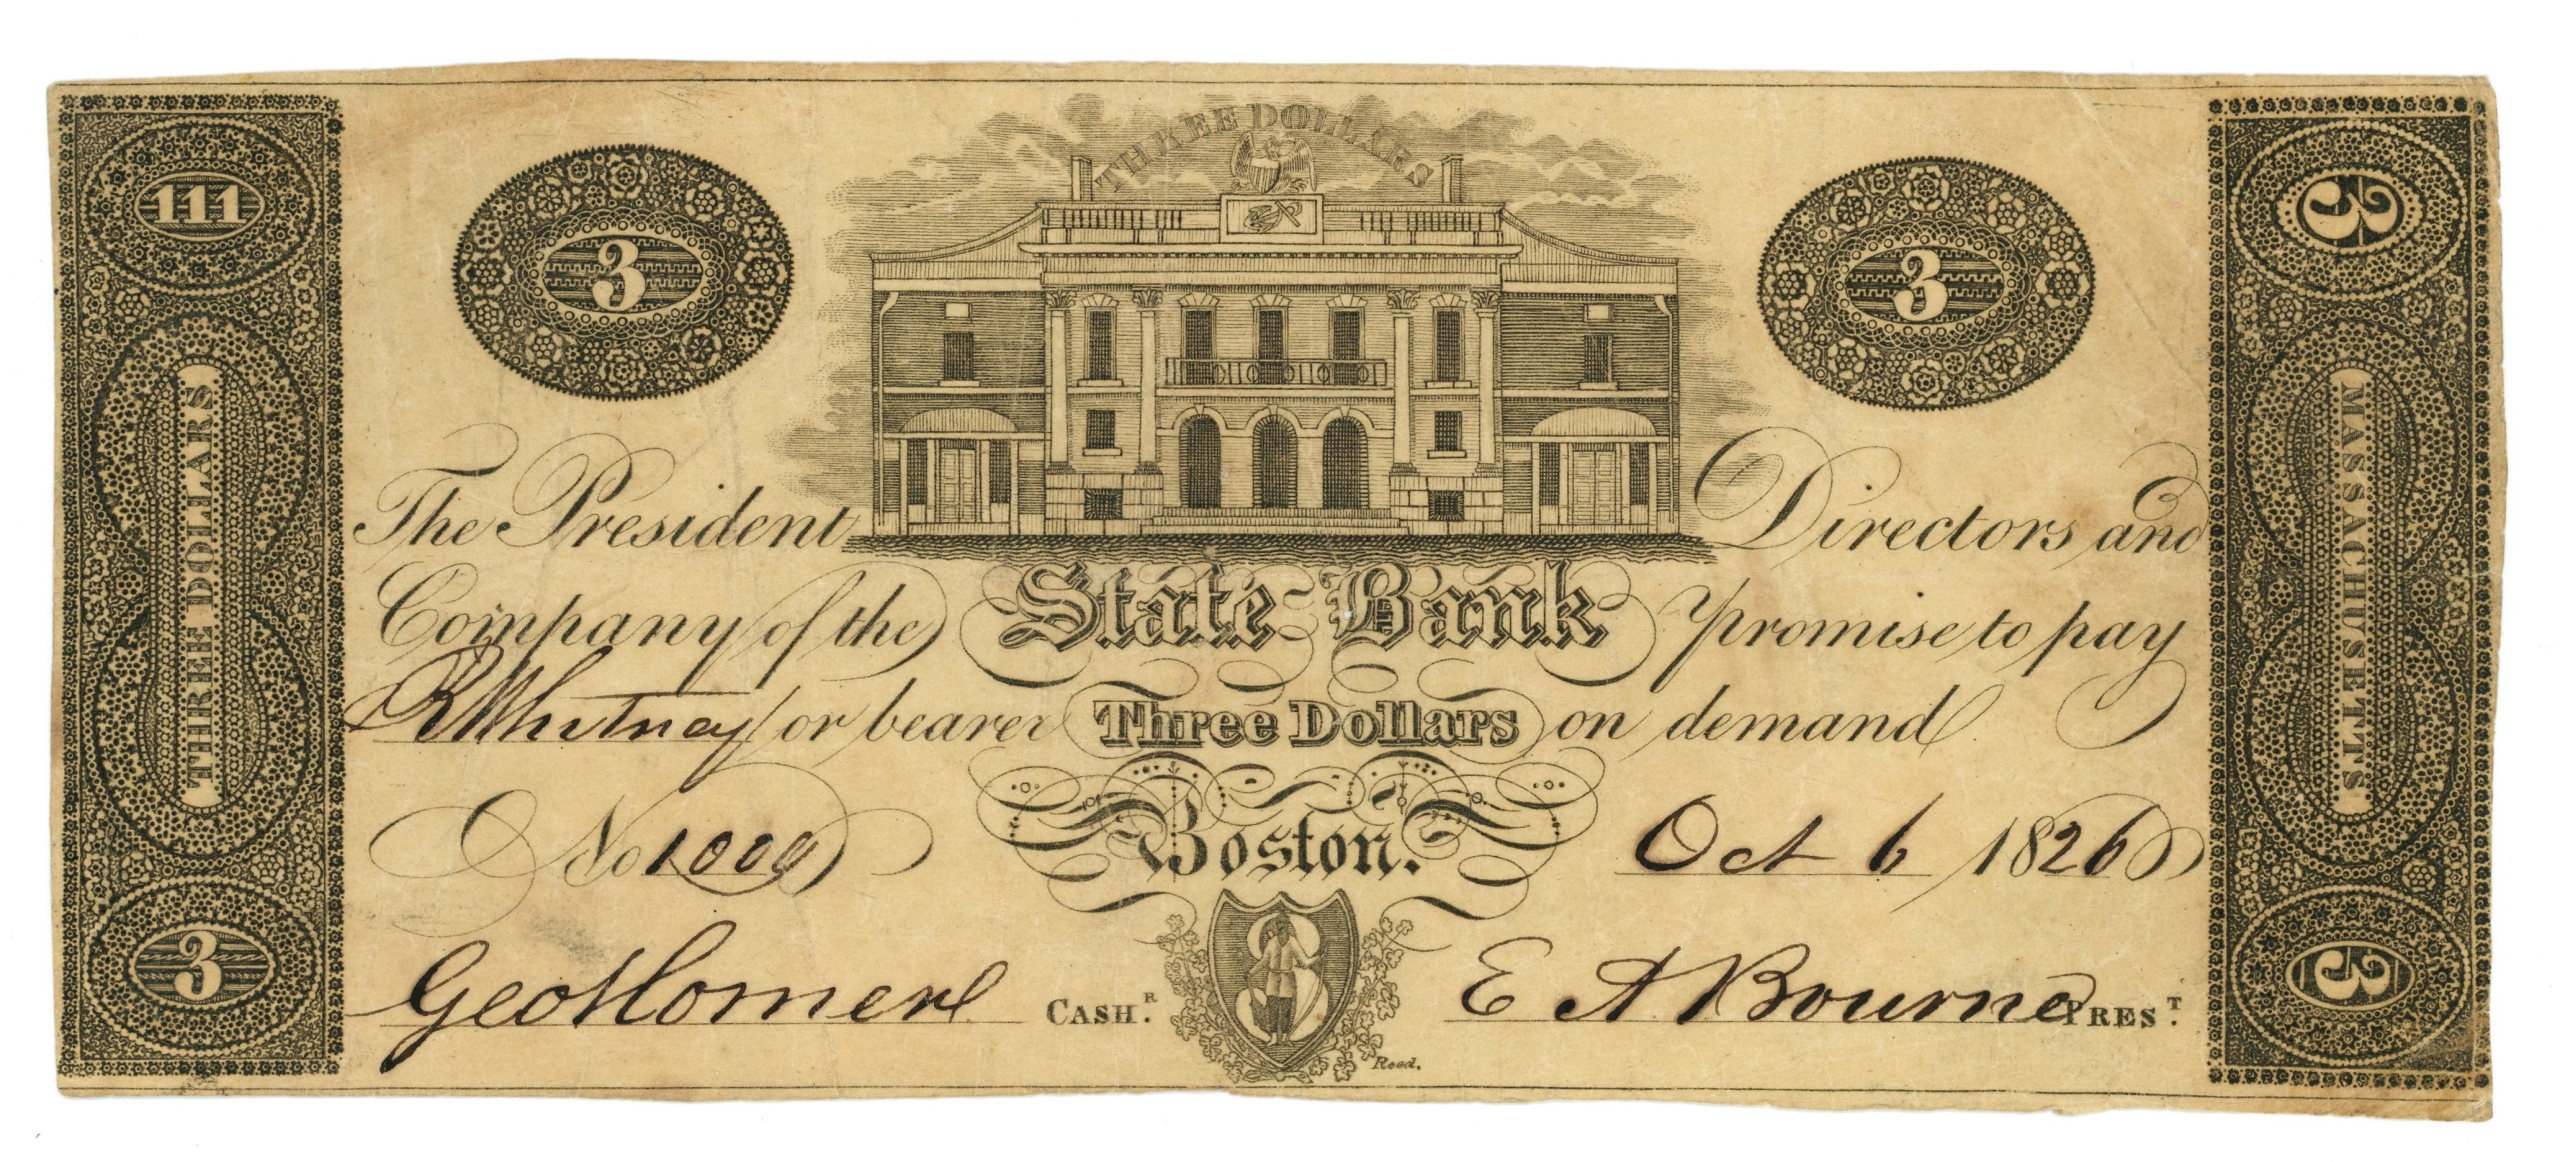 THREE DOLLARS
111
3
3
3
3
THREE DOLLARS
MASSACHUSETTS
The President Directors and
Company of the State Bank promise to pay
R Whitney or bearer Three Dollars on demand
No 1000 Boston. Oct 6 1826
Geo Homer CASH.R E A Bourne PRES.T
3
3
3
Reed.